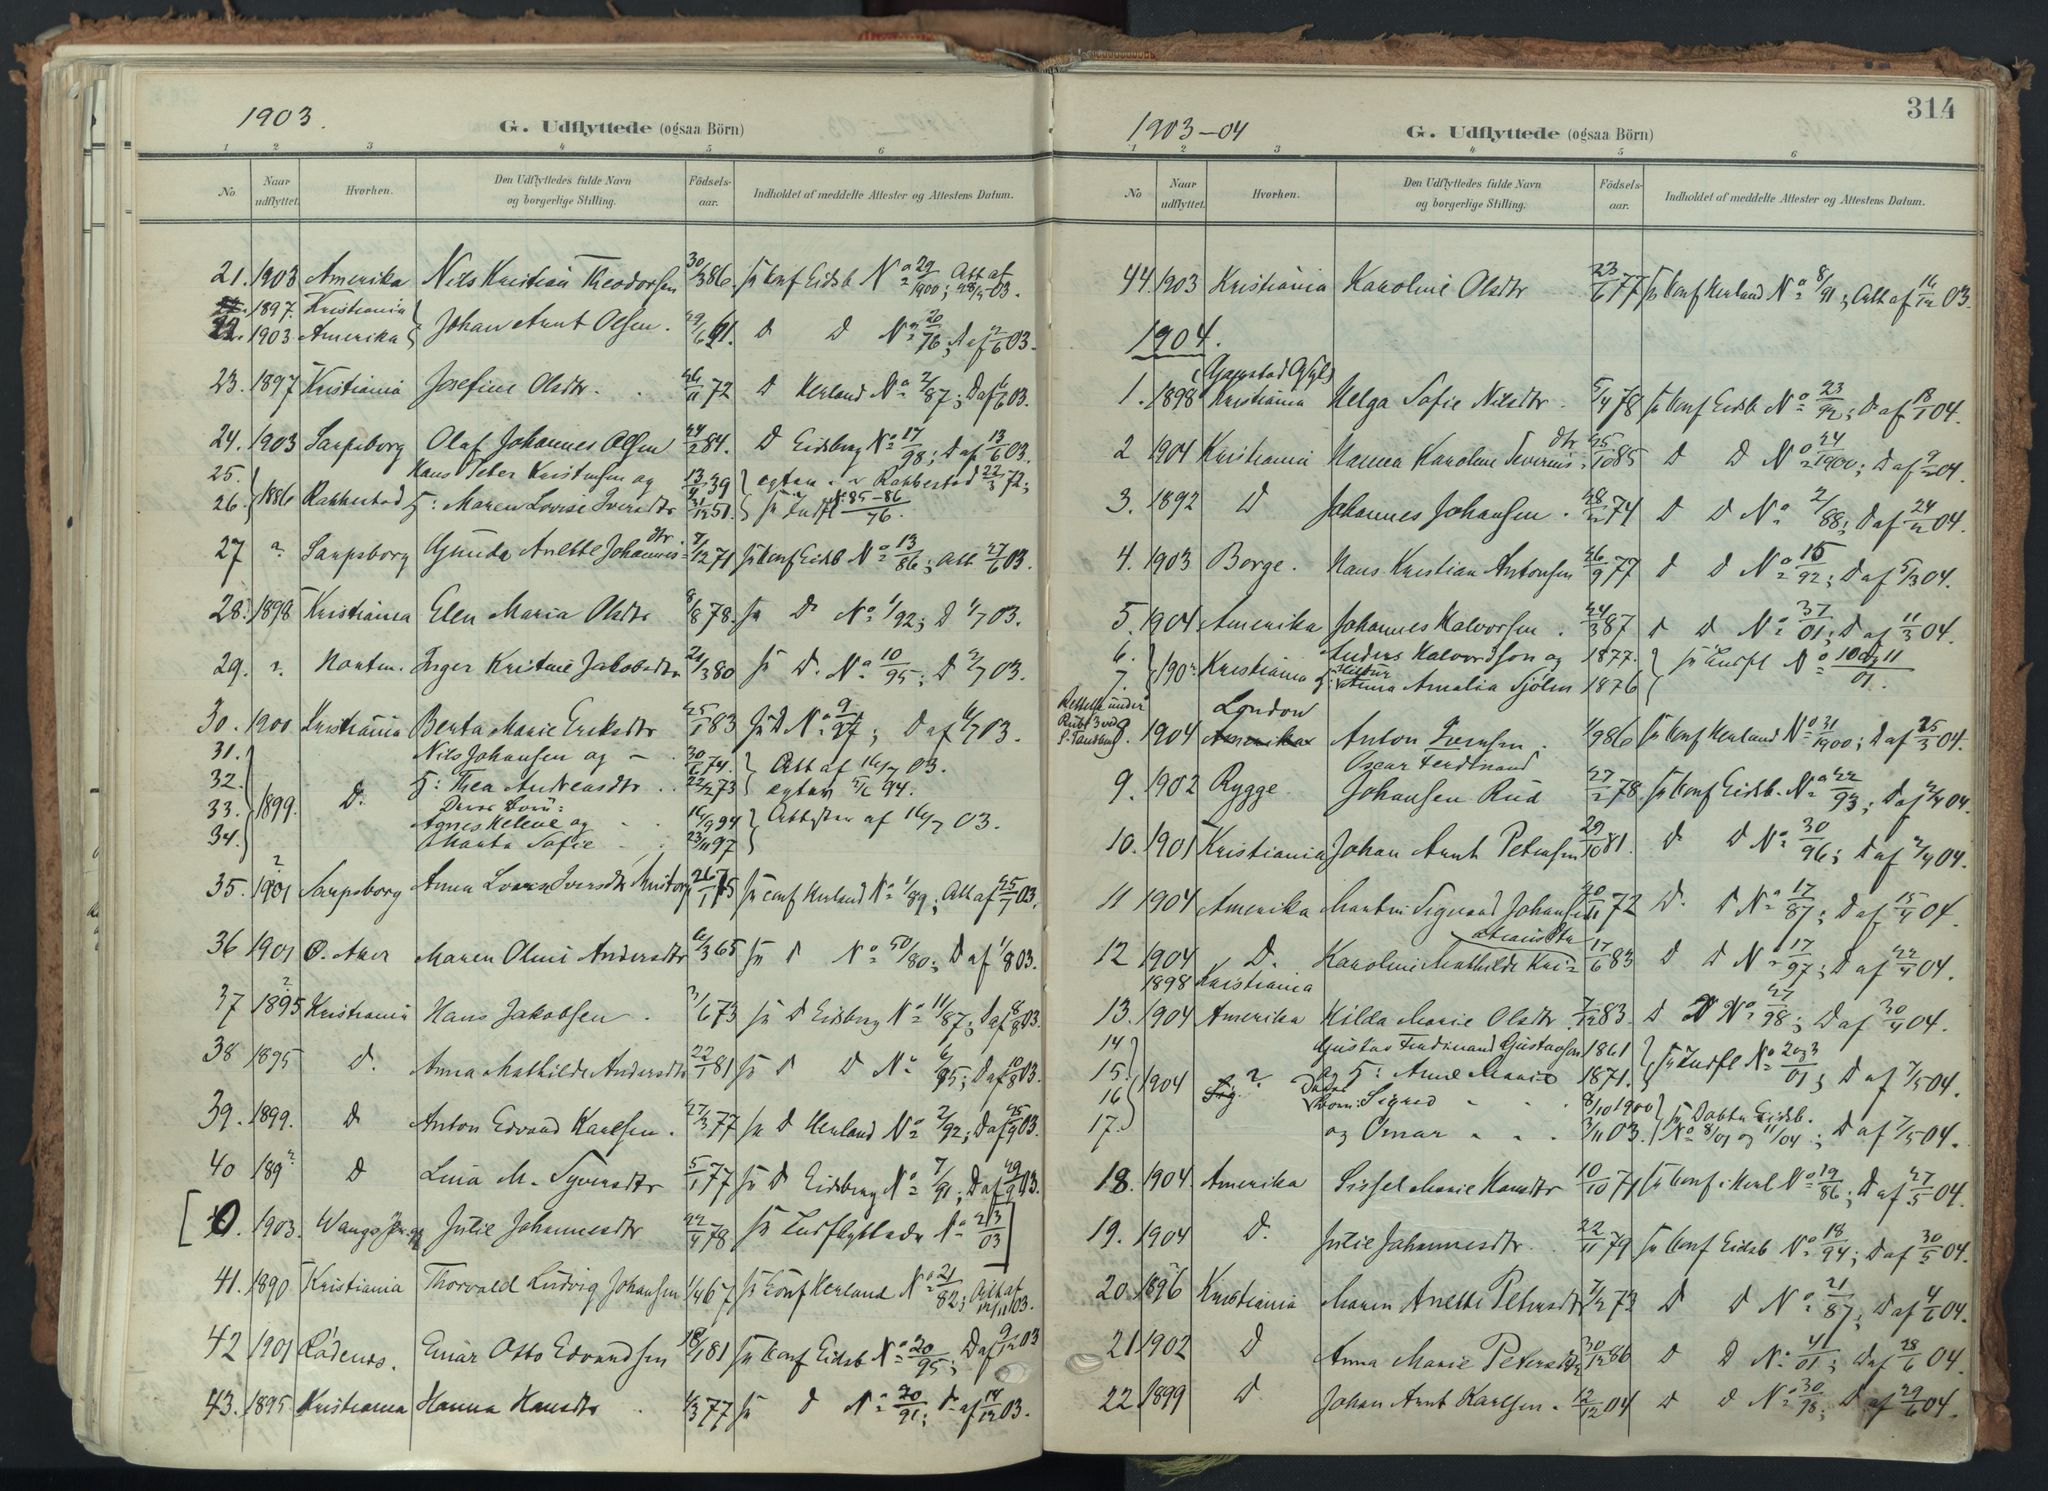 1903.
G. Udflyttede (ogsaa Börn)
1 2 3 4 5 6
No. Naar udflyttet. Hvorhen. Den Udflyttedes fulde Navn og borgerlige Stilling. Födsels-aar. Indholdet af meddelte Attester og Attestens Datum.
21. 1903 Amerika Nils Kristian Theodorsen 30/3 86. Conf Eidsb No 29/1900; Att af 03.
1897. Kristiania
22. 1903 Amerika Johan Arnt Olsen. 61. D D No 20/76; D af 03.
23. 1897 Kristiania Josefine Olsdtr. 26/11 72 D Herland No 2/87; D af 03.
24. 1903 Sarpsborg Olaf Johannes Olsen 24/2 84. D Eidsberg No 17/98; D af 13/6 03.
25. Hans Peter Kristensen og 13/ 39 Rakkestad 22/3 72;
26. 1886 Rakkestad H: Maren Lovise Iversdtr 51. Indfl No 85-86/76.
27 ? Sarpsborg Gunda Anette Johannesdtr. 7/12 71 Conf Eidsb No 13/86; Att. 27/6 03.
28. 1898 Kristiania Elen Maria Olsdtr 8/8 78. D. No 1/92; D 1/7 03.
29. ? Inger Kristine Jakobsdtr 21/3 80 D. No 10/95; D 2/7 03.
30. 1900 Kristiania Berta Marie Eriksdtr 25/1 83 D No 9/97; D af 03.
31. Nils Johansen og 30/6 74. Att af 16/7 03.
32. H: Thea Andreasdtr 22/2 73
33. 1899. D. Agnes Helene og 16/9 94 Attester af 16/7 03.
34. Marta Sofie 23/11 97
35. 1901 Sarpsborg Anna Lovise Iversdtr 26/1 75 Conf Herland No 1/89; Att af 25/7 03.
36 1901 Ø. Aker Maren Oline Andersdtr 6/3 65 D No 50/80; D af 1/8 03.
37 1895 Kristiania Hans Jakobsen. 3/6 73 D Eidsberg No 11/87; D af 8/8 03.
38 1895 D. Anna Mathilde Andersdtr 22/1 81 D D No 6/95; D af 10/8 03.
39. 1899. D Anton Edvard Karlsen. 27/3 77 D Herland No 2/92; D af 25/9 03.
40 189? D Lina M. Syversdtr 5/1 77 D Eidsberg No 7/91; D af 29/9 03.
[40. 1903. Julie Johannesdtr 24/4 78 Indflyttede No 213/03]
41. 1890 Kristiania Thorvald Ludvig Johansen 1/4 67 Conf Herland No 21/82; Att af 12/11 03.
42 1901 Rödenes. Einar Otto Edvardsen 18/1 81 Conf Eidsb No 20/95; D af 9/12 03
43. 1895 Kristiania Hanna Hansdtr 1/3 77 D No 20/91; D af 14/12 03.
314
1903-04
G. Udflyttede (ogsaa Börn)
1 2 3 4 5 6
No Naar udflyttet. Hvorhen. Den Udflyttedes fulde Navn og borgerlige Stilling. Födsels-aar. Indholdet af meddelte Attester og Attestens Datum.
44. 1903 Kristiania Karoline Olsdtr 23/6 77 Conf Herland No 8/91; Att af 16/12 03.
1904.
1. 1898 Kristiania Helga Sofie Nilsdtr. 5/4 78 Conf Eidsb No 23/92; D af 18/1 04.
2 1904 Kristiania Hanna Karoline Severinsdtr 25/10 85 D D No 24/1900; D af 9/2 04.
3. 1892 D Johannes Johansen. 74 D D No 2/88; D af 24/2 04.
4. 1903 Borge. Hans Kristian Antonsen 26/9 77 D D No 15/92; D af 5/3 04.
5. 1904 Amerika Johannes Halvorsen. 24/3 87 D D No 37/01; D af 11/3 04.
6. Anders Halvordson og 1877.
7. 190? Kristiania Anna Amalia Sjölin 1876 Indfl No 10 og 11/01.
London
8. 1904 Amerika Anton Iversen. 1/9 86 Conf Herland No 31/1900; D af 25/3 04.
9. 1902 Rygge Oscar Ferdinand Johansen Rud 27/2 78. Conf Eidsb. No 22/93; D af 2/4 04.
10. 1901 Kristiania Johan Arnt Petersen 29/10 81. D D No 30/96; D af 2/4 04.
11 1904 Amerika Martin Sigvard Johansen 20/11 72 D. D No 17/87; D af 15/4 04.
12 1904 D. Karoline Mathilde Kristiansdtr 17/6 83 D D No 17/97; D af 22/4 04.
1898 Kristiania
13. 1904 Amerika Hilda Marie Olsdtr. 7/12 83. D No 27/98; D af 30/4 04.
14 Gustav Ferdinand Gustavsen 1861
15. og H: Anne Marie 1871. Indfl No 2 og 3/01; D af 7/5 04.
16 1904 ? Deres Börn: Sigrid 8/10 1900 Döbte Eidsb.
17. og Omar 3/11 03. No 8/01 og 11/04; D af 7/5 04.
18. 1904. Amerika Sissel Marie Hansdtr 10/10 71 Conf. Herl No 19/86; D af 27/5 04.
19. 1904 D. Julie Johannesdtr. 22/11 79 Conf Eidsb No 18/94; D af 30/5 04.
20. 1896 Kristiania Maren Anette Petersdtr 7/2 73 D D No 21/87; D af 4/6 04.
21 1902 D Anna Marie Petersdtr 30/12 86 D D No 41/01; D af 28/6 04.
22 1899 D. Johan Arnt Karlsen. 12/12 04 D D No 30/98; D. af 29/6 04.